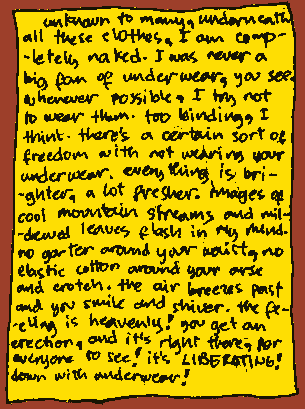 unknown to many, underneath
all these clothes, I am comp-
-letely naked. I was never a
big fan of underwear, you see.
whenever possible, I try not
to wear them. too binding, I
think. there's a certain sort of
freedom with not wearing your
underwear. everything is bri-
-ghter, a lot fresher. images of
cool mountain streams and mil-
-dewed leaves flash in my mind.
no garter around your waist, no
elastic cotton around your arse
and crotch. the air breezes past
and you smile and shiver. the fe-
-eling is heavenly! you get an
erection, and it's right there, for
everyone to see! it's LIBERATING!
down with underwear!